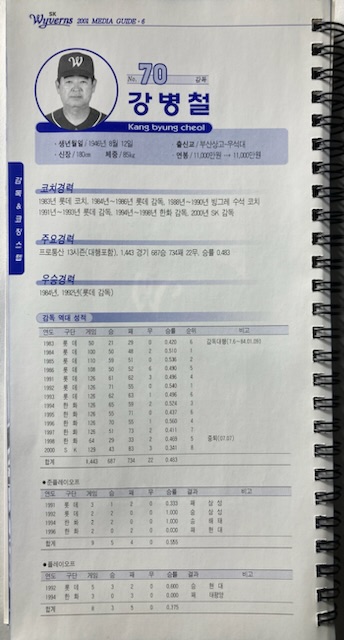 SK
Wyverns 2001 MEDIA GUIDE · 6
W
No. 70 감독
강병철
Kang byung cheol
· 생년월일 / 1946년 8월 12일
· 출신교 / 부산상고-우석대
· 신장 / 180㎝ 체중 / 85㎏
· 연봉 / 11,000만원 → 11,000만원
감독&코칭스탭
코치경력
1983년 롯데 코치, 1984년~1986년 롯데 감독, 1988년~1990년 빙그레 수석 코치
1991년~1993년 롯데 감독, 1994년~1998년 한화 감독, 2000년 SK 감독
주요경력
프로통산 13시즌(대행포함), 1,443 경기 687승 734패 22무, 승률 0.483
우승경력
1984년, 1992년(롯데 감독)
감독 역대 성적
연도 구단 게임 승 패 무 승률 순위 비고
1983 롯데 50 21 29 0 0.420 감독대행(7.6~84.01.09)
1984 롯데 100 50 48 2 0.510 1
1985 롯데 110 59 51 0 0.536 2
1986 롯데 108 50 52 6 0.490 5
1991 롯데 126 61 62 3 0.496 4
1992 롯데 126 71 55 0 1
1993 롯데 126 62 63 1 0.496 6
1994 한화 126 65 59 2 0.524 3
1995 한화 126 55 71 0 0.437 6
1996 한화 126 70 55 1 0.560 4
1997 한화 126 51 73 2 0.411 7
1998 한화 64 29 33 2 0.469 5 중퇴(07.07)
2000 S K 8
합계 1,443 687 734 22
●준플레이오프
연도 구단 게임 승 패 무 승률 결과 비고
1991 롯데 3 1 2 0 0.333 패 삼성
1992 롯데 2 2 0 0 1.000 승 삼성
1994 한화 2 2 0 0 1.000 승 해태
1996 한화 2 0 2 0 0.000 패 현대
합계 9 5 4 0
●플레이오프
연도 구단 게임 승 패 무 승률 결과 비고
1992 롯데 5 3 2 0 승
1994 한화 3 0 3 0 0.000 패 태평양
합계 8 3 5 0 0.375